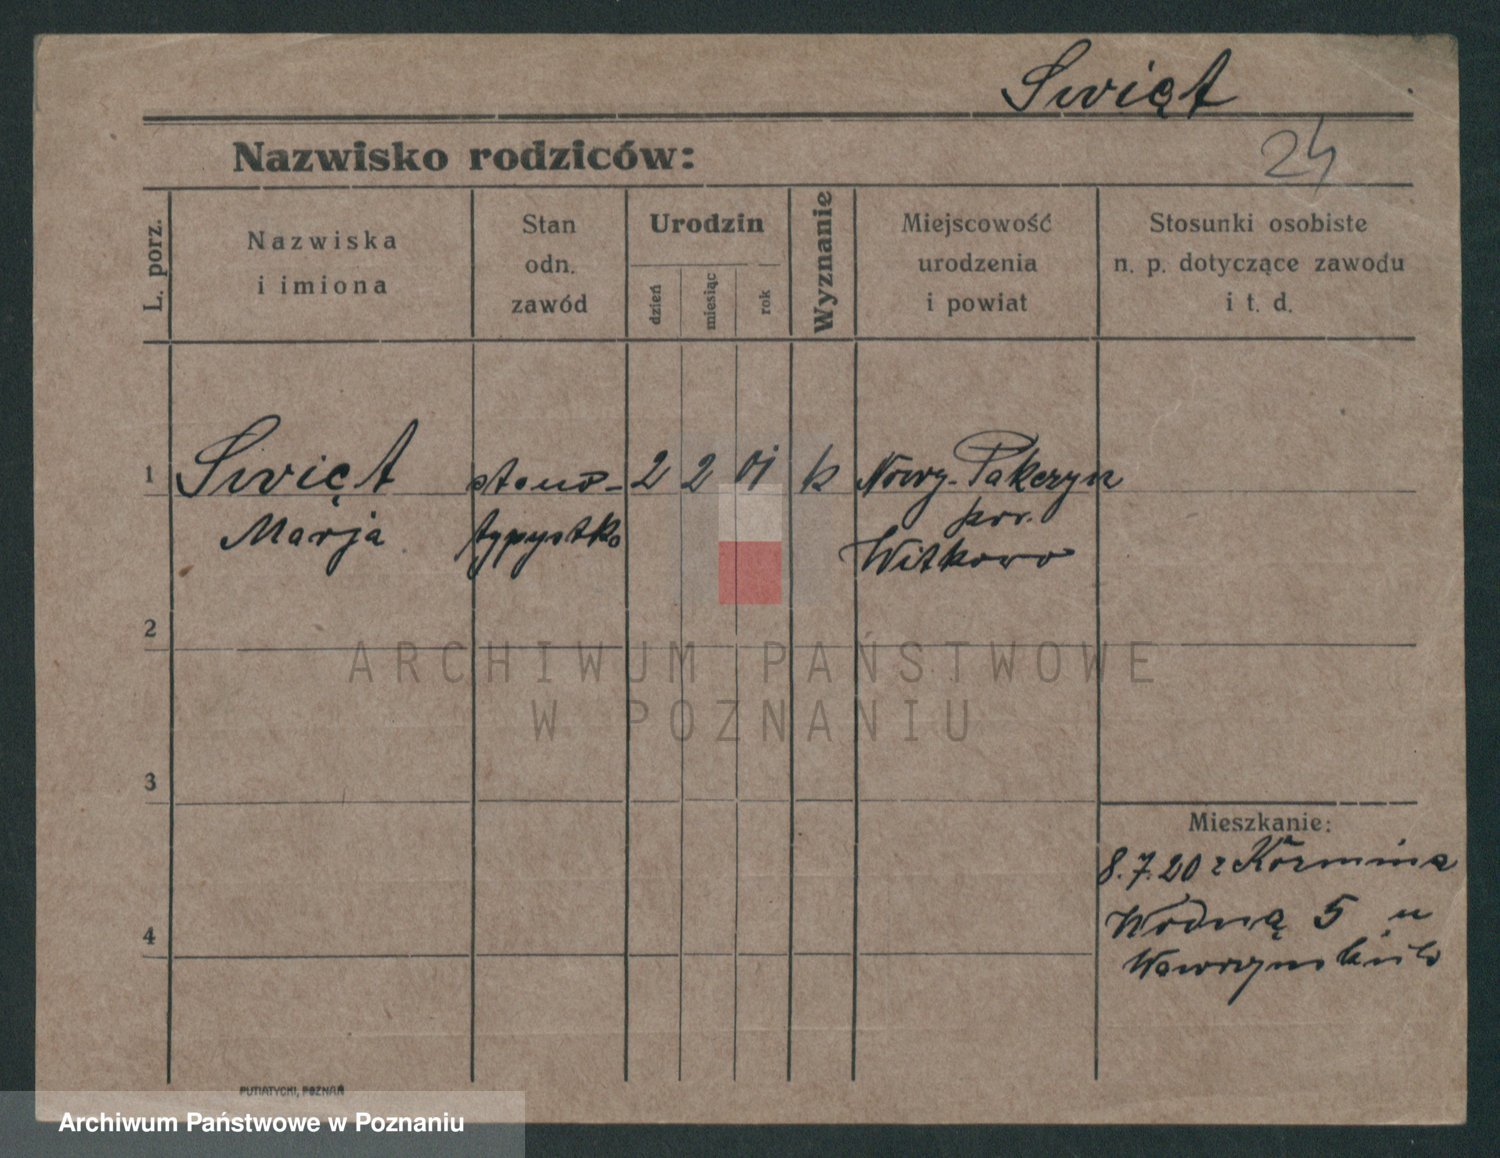 Swięt
24
Nazwisko rodziców:
L. porz.
Nazwiska
i imiona
Stan
odn.
zawód
Urodzin
dzień
miesiąc
rok
Wyznanie
Miejscowość
urodzenia
i powiat
Stosunki osobiste
n. p. dotyczące zawodu
i t. d.
1 Swięt steno- 2 2 01 k Nowy-
Marja typystka pow.
Witkowo
2
ARCHIWUM PAŃSTWOWE
W POZNANIU
3
Mieszkanie:
8.7.20 z Koźmina
4 Wodną 5 u
PUTIATYCKI, POZNAŃ
Archiwum Państwowe w Poznaniu